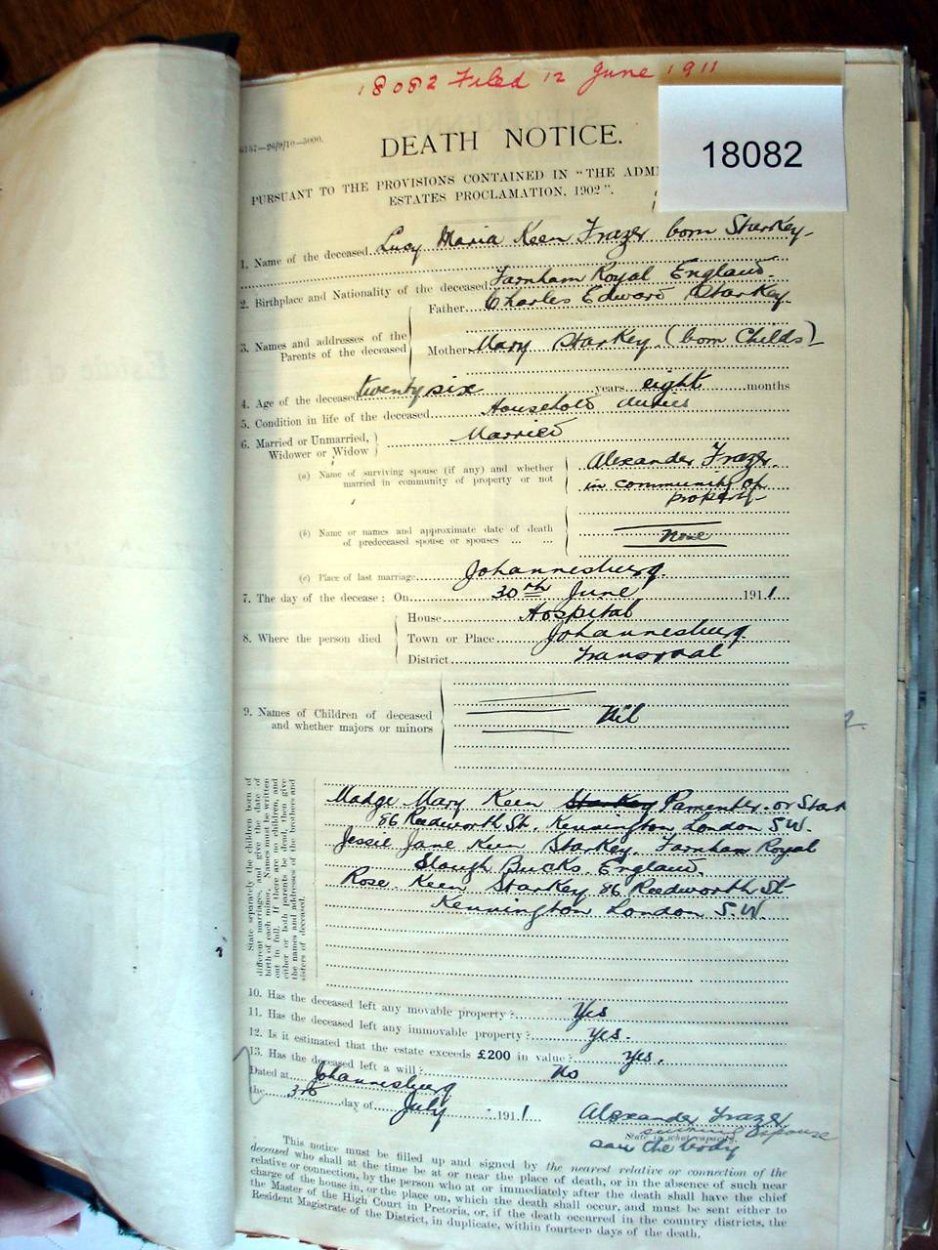 18082 Filed 12 June 1911
18082
DEATH NOTICE.
PURSUANT TO THE PROVISIONS CONTAINED IN "THE ADM
ESTATES PROCLAMATION, 1902".
1. Name of the deceased Lucy Maria Keen Frazer born Starkey-
2. Birthplace and Nationality of the deceased Farnham Royal England.
3. Names and addresses of the Parents of the deceased
Father Charles Edward Starkey
Mother Mary Starkey (born Childs)
4. Age of the deceased twenty six years eight months
5. Condition in life of the deceased Household duties
6. Married or Unmarried, Widower or Widow Married
(a) Name of surviving spouse (if any) and whether married in community of property or not
Alexander Frazer
in community of
property-
(b) Name or names and approximate date of death of predeceased spouse or spouses ... ... None
(c) Place of last marriage Johannesburg
7. The day of the decease: On 30th June 1911
8. Where the person died
House Hospital
Town or Place Johannesburg
District Transvaal
9. Names of Children of deceased and whether majors or minors
Nil
State separately the children born of
different marriages, and give the date of
birth of each minor. Names must be written
out in full. If there are no children, and
either or both parents be dead, then give
the names and addresses of the brothers and
sisters of deceased.
Madge Mary Keen Starkey Parmenter or Star
86 Reedworth St. Kennington London S.W.
Jessie Jane Keen Starkey. Farnham Royal
Slough Bucks England.
Rose Keen Starkey 86 Reedworth St
Kennington London S.W.
10. Has the deceased left any movable property? Yes
11. Has the deceased left any immovable property? Yes.
12. Is it estimated that the estate exceeds £200 in value? Yes.
13. Has the deceased left a will? No
Dated at Johannesburg
the day of July 1911
Alexander Frazer
spouse
State in what capacity.
saw the body
This notice must be filled up and signed by the nearest relative or connection of the
deceased who shall at the time be at or near the place of death, or in the absence of such near
relative or connection, by the person who at or immediately after the death shall have the chief
charge of the house in, or the place on, which the death shall occur, and must be sent either to
the Master of the High Court in Pretoria, or, if the death occurred in the country districts, the
Resident Magistrate of the District, in duplicate, within fourteen days of the death.